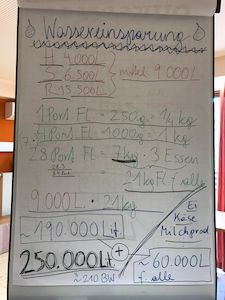 Wassereinsparung
H 4.000L
S 6.500L
R 15.500L
} mittel 9.000L
1 Port Fl = 250g = 1/4 kg
4 Port Fl = 1000g = 1 kg
28 Port Fl = 7kg · 3 Essen
= 21kg Fl f. alle
9.000L · 21kg
~190.000Lit
+
250.000Lt
≈ 210 BW
Ei
Käse
Milchprod
≈ 60.000L
f. alle